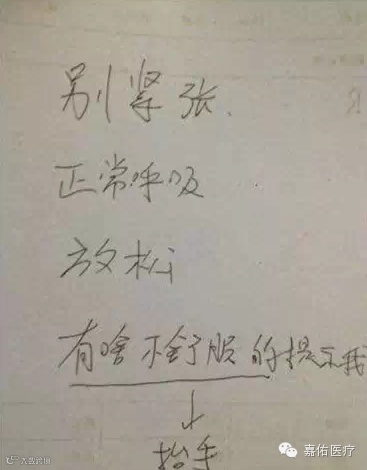 别紧张.
正常呼吸
放松
有啥不舒服的提示我
↓
抬手
嘉佑医疗
大数跨境